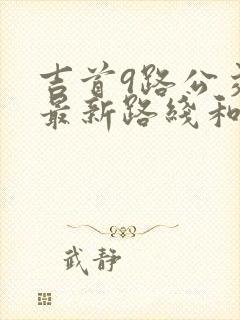 吉首9路公
最新路线和
武静